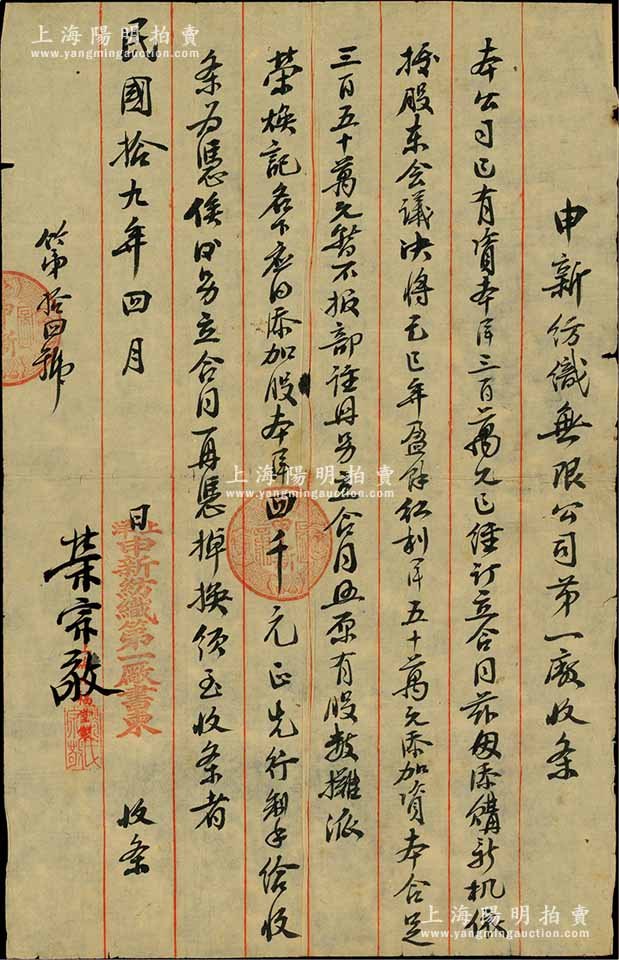 申新纺織無限公司第一廠收条
本公司已有資本洋三百萬元已經訂立合同茲因添購新机依
據股東会議决將己巳年盈餘紅利洋五十萬元添加資本合足
三百五十萬元暫不报部註册另立合同且原有股数攤派
榮焕記名下應得添加股本洋四千元正先行製给收
条为憑俟日另立合同再憑掉换须至收条者
民國拾九年四月 日 收条
上海申新紡織第一廠書柬
榮宗敬
第拾四號
上海陽明拍賣
www.yangmingauction.com
上海陽明拍賣
www.yangmingauction.com
上海陽明拍賣
www.yangmingauction.com
上海陽明拍賣
www.yangmingauction.com